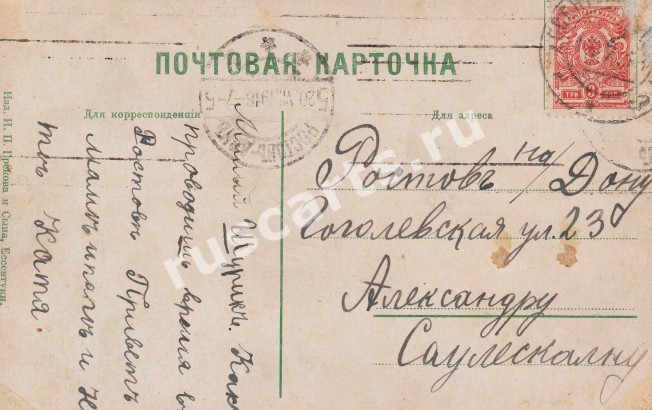 ПОЧТОВАЯ КАРТОЧКА
Для корреспонденціи
Для адреса
Милый Шурикъ. Какъ
проводишь время в
Ростовѣ Привѣтъ
мамѣ и папѣ и Н
тѣ Катя.
Ростовъ на / Дону
Гоголевская ул. 23
Александру
Саулескалну
Изд. И. П. Црекова и Сына, Ессентуки.
ТРИ 3
ruscards.ru